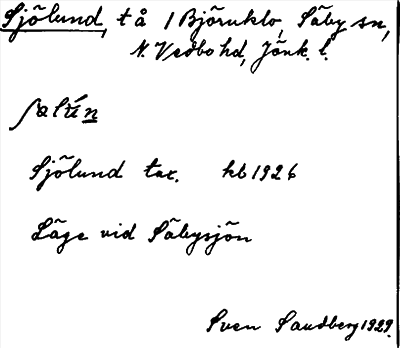 Sjölund, t å 1 Björnklo, Säby sn,
N. Vedbo hd, Jönk. l.
Sjölund tax. hb 1926
Läge vid Säbysjön
Sven Sandberg 1929.